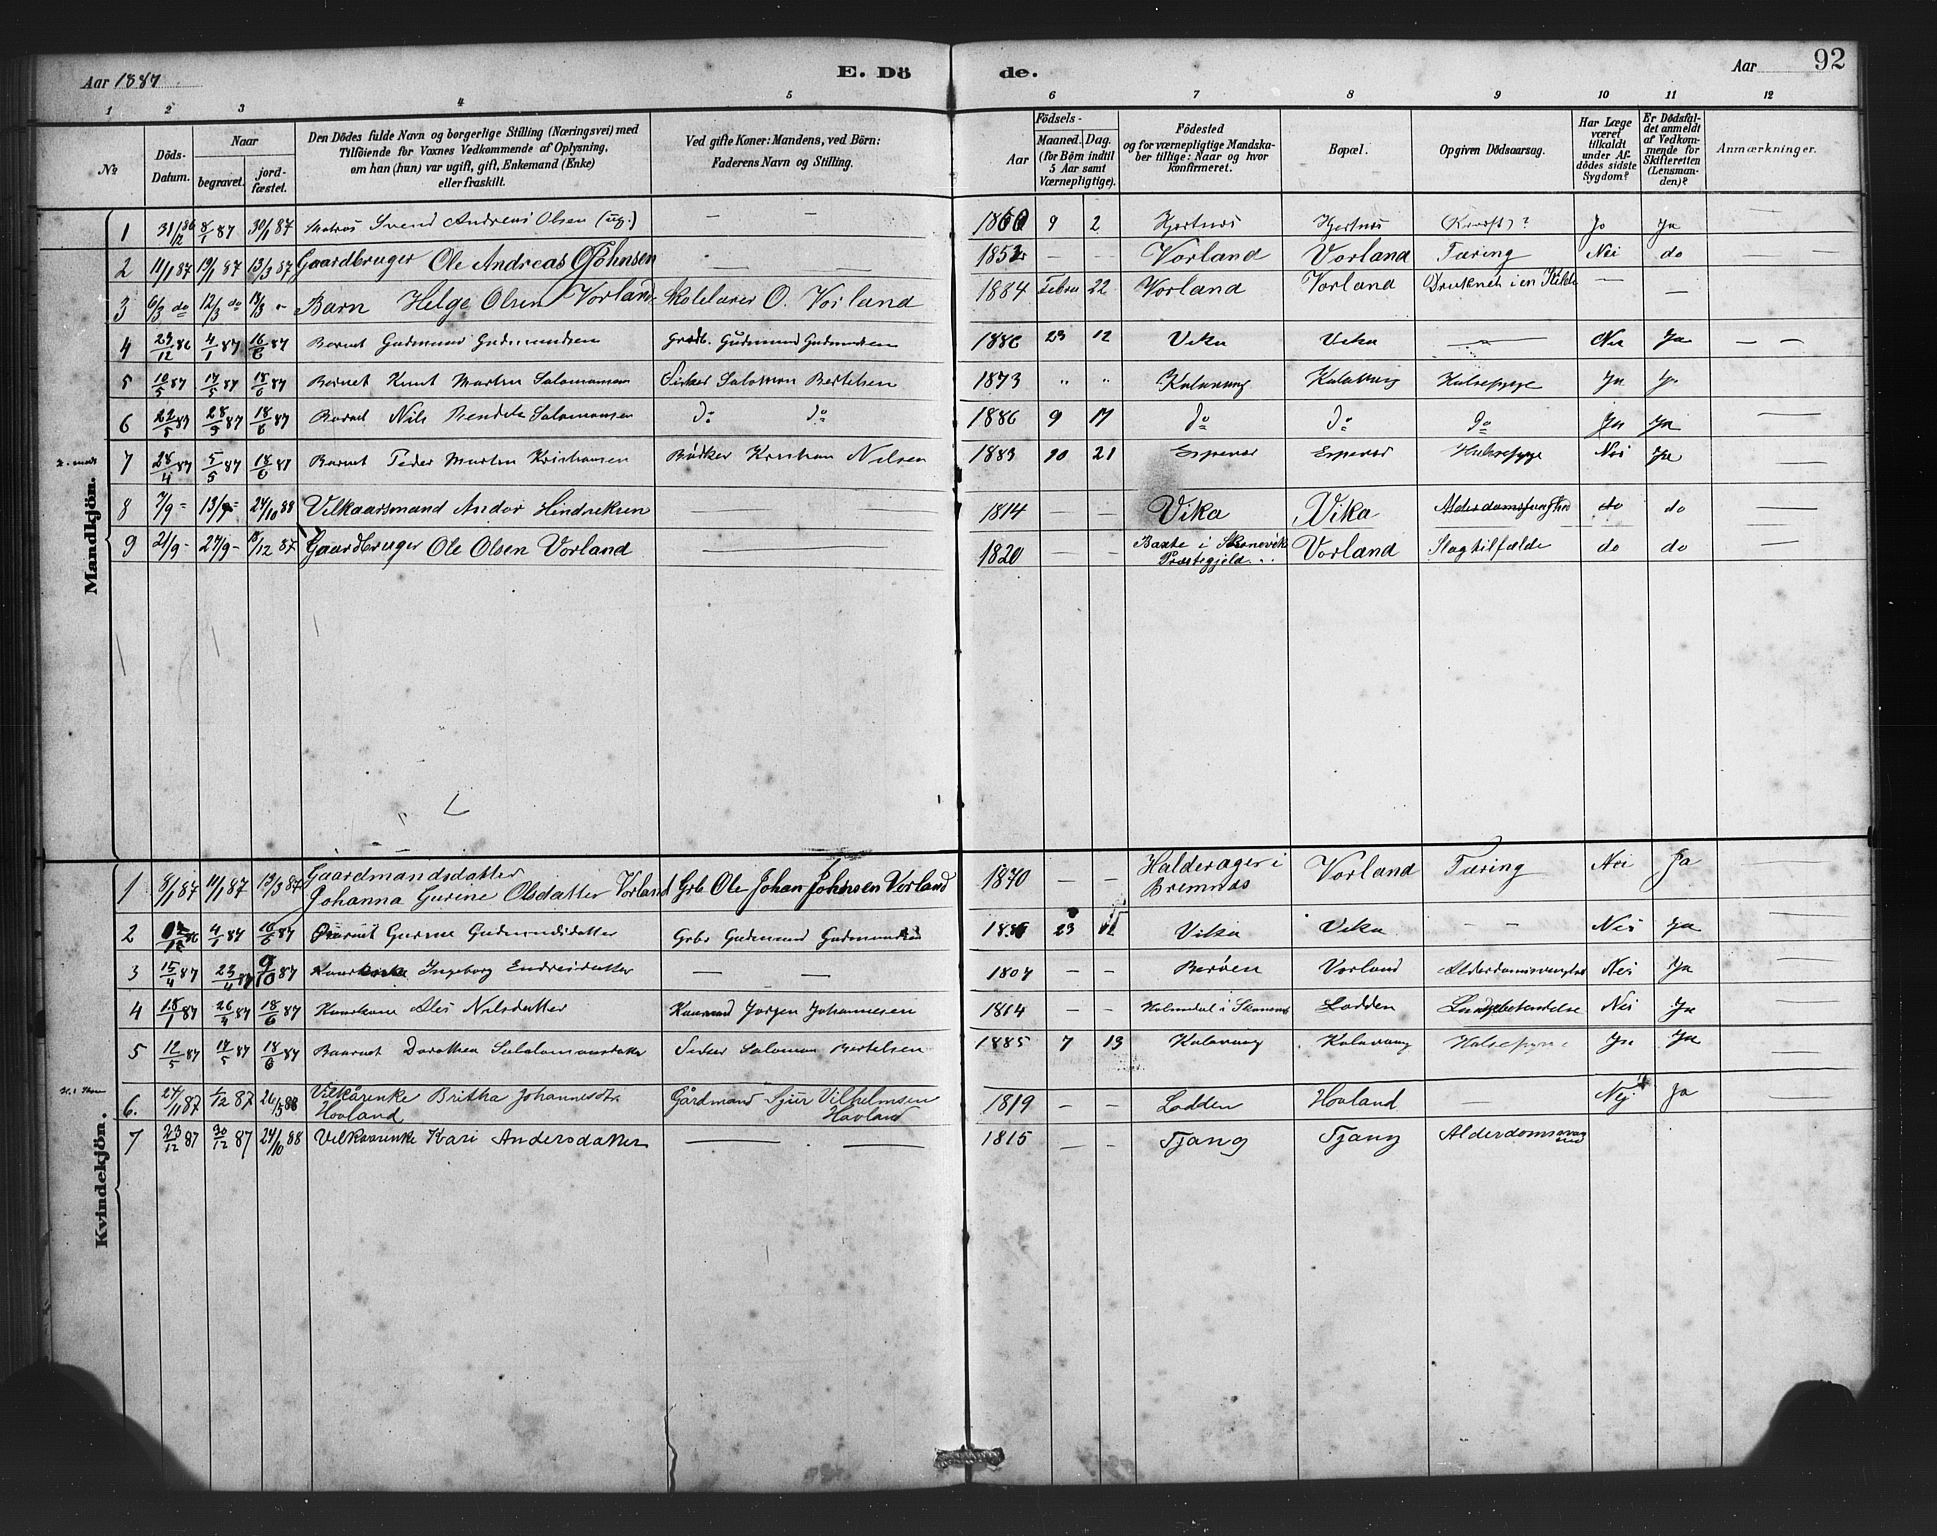 Aar 1887 E. Dö de. Aar 92
1 2 3 4 5 6 7 8 9 10 11 12
No Döds-Datum. Naar begravet. jordfæstet. Den Dödes fulde Navn og borgerlige Stilling (Næringsvei) med Tilföiende for Voxnes Vedkommende af Oplysning, om han (hun) var ugift, gift, Enkemand (Enke) eller fraskilt. Ved gifte Koner: Mandens, ved Börn: Faderens Navn og Stilling. Födsels- Aar Maaned. Dag. (for Börn indtil 5 Aar samt Værnepligtige). Födested og for værnepligtige Mandskaber tillige: Naar og hvor konfirmeret. Bopæl. Opgiven Dödsaarsag. Har Læge været tilkaldt under Afdödes sidste Sygdom? Er Dödsfaldet anmeldt af Vedkommende for Skifteretten (Lensmanden)? Anmærkninger.
Mandkjön.
1 31/12 86 8/1 87 30/1 87 Matros Svend Andreas Olsen (ug.) — — 9 2 Hjertnes Hjertnes Jo Ja —
2 11/1 87 19/1 87 13/3 87 Gaardbruger Ole Andreas Johnsen — — — — Vorland Vorland Tæring Nei do —
3 6/3 do 12/3 do 13/3 " Barn Helge Olsen Vorland Skolelærer O. Vorland 1884 Febru 22 Vorland Vorland Druknet i en Kilde — —
4 23/12 86 4/1 87 16/6 87 Barnet Gudmund Gudmundsen Grdb. Gudmund Gudmundsen 1886 23 12 Vika Vika — Nei Ja — —
5 10/5 87 17/5 87 18/6 87 Barnet Knut Martin Salomonsen Fisker Salomon Bertelsen 1873 " " Kulavaag Kulavaag Halsesyge Ja Ja —
6 22/5 87 28/5 87 18/6 87 Barnet Nils Bendik Salomonsen do do 1886 9 17 do do do Ja Ja —
7 28/4 87 5/5 87 18/6 87 Barnet Peder Martin Kristiansen Bödker Kristian Nilsen 1883 10 21 Espevær Espevær Halsesyge Nei Ja —
8 7/9 " 13/9 " 24/10 88 Vilkaarsmand Andor Hindriksen — 1814 — — Vika Vika do do —
9 21/9 - 27/9 - 18/12 87 Gaardbruger Ole Olsen Vorland — 1820 — — i Skonevik Præstegjeld Vorland Slagtilfælde do do —
Kvindekjön.
1 8/1 87 11/1 87 13/3 87 Gaardmandsdatter
Johanna Gurine Olsdatter Vorland Grb. Ole Johan Johnsen Vorland 1870 — — Halderager i Bremnæs Vorland Tæring Nei Ja —
2 4/1 87 16/6 87 Barnet Gurine Gudmundsdatter Grbr Gudmund Gudmundsen 23 Vika Vika — — Nei Ja —
3 15/4 87 23/4 87 9/10 87 Ingeborg Endresdatter — — 1807 — — Beröen Vorland Nei Ja —
4 26/4 87 18/6 87 Nilsdatter Jorgen Johannesen 1814 — — Lodden Lungebetendelse Nei Ja —
5 12/5 87 17/5 87 18/6 87 Barnet Dorothea Salomonsdatter Fisker Salomon Bertelsen 1885 7 13 Kulavaag Kulavaag Halsesyge Ja Ja —
6. 24/11 87 1/12 87 26/5 88 Vilkårenke Britha Johannesdtr Hovland Gårdmand Sjur Vilhelmsen Hovland 1819 — — Lodden Hovland — Nej Ja —
7 23/12 87 30/12 87 24/10 88 Vilkaarenke Kari Andersdatter — — 1815 — — Tjang Tjang